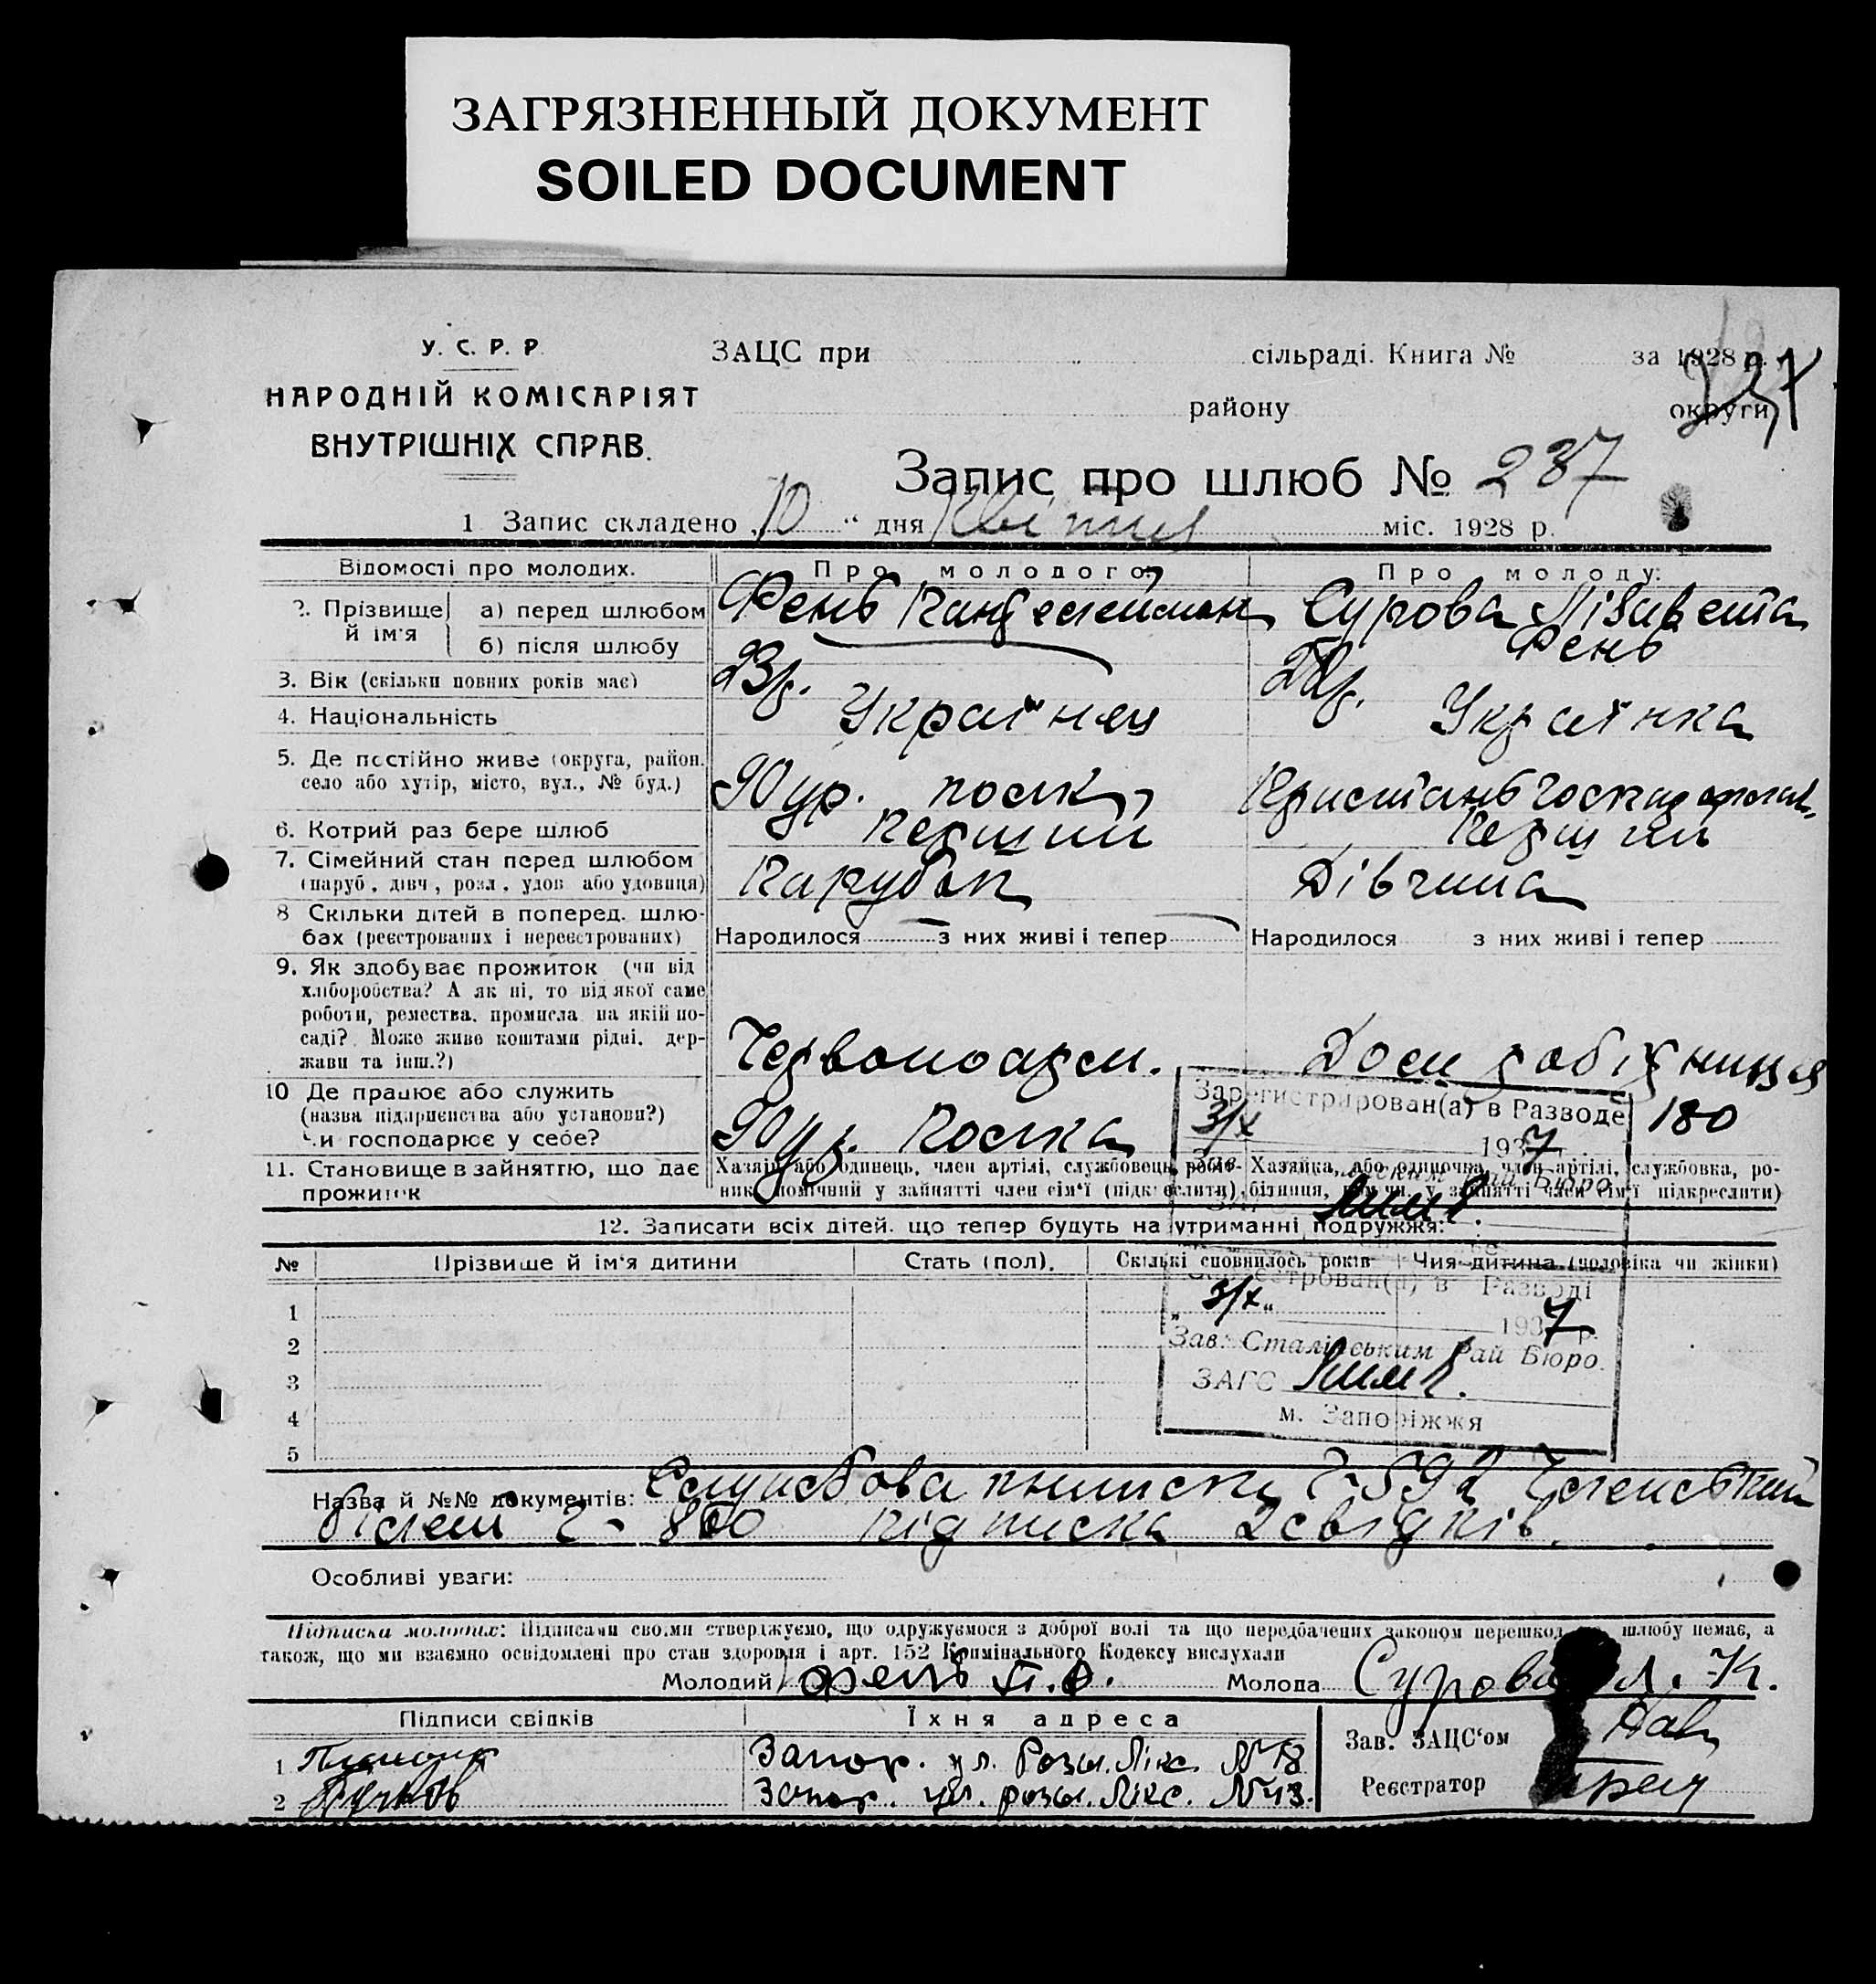 ЗАГРЯЗНЕННЫЙ ДОКУМЕНТ
SOILED DOCUMENT
У. С. Р. Р.
НАРОДНІЙ КОМІСАРІЯТ
ВНУТРІШНІХ СПРАВ.
ЗАЦС при сільраді. Книга № за 1928 р.
району округи
237
Запис про шлюб № 237
1 Запис складено „10“ дня Квітня міс. 1928 р.
Відомості про молодих. Про молодого: Про молоду:
2. Прізвище й ім'я
а) перед шлюбом Фень Сурова Лізавета
б) після шлюбу Фень
3. Вік (скільки повних років має) 23 р.
4. Національність Українец Українка
5. Де постійно живе (округа, район,
село або хутір, місто, вул., № буд.) 90 ур. полк,
6. Котрий раз бере шлюб Перший Перший
7. Сімейний стан перед шлюбом
(паруб., дівч., розл., удов. або удовиця) Парубок Дівчина
8 Скільки дітей в поперед. шлю-
бах (реєстрованих і нереєстрованих) Народилося з них живі і тепер Народилося з них живі і тепер
9. Як здобуває прожиток (чи від
хліборобства? А як ні, то від якої саме
роботи, ремества, промисла на якій по-
саді? Може живе коштами рідні, дер-
жави та інш.?) Червоноарм. Дом робітниця
10 Де працює або служить
(назва підприємства або установи?)
Чи господарює у себе? 90 ур. Полка
Зарегистрирован(а) в Разводе 180
3/X 1937
11. Становище в зайнятгю, що дає
прожиток
Хазяїн або одинець, член артілі, службовець, робіт-
ник, помічний у зайнятті член сім'ї (підкреслити)
Хазяйка, або одиночка, член артілі, службовка, ро-
бітниця, помічн. у зайнятті член сім'ї підкреслити)
12. Записати всіх дітей, що тепер будуть на утриманні подружжя:
№ Прізвише й ім'я дитини Стать (пол). Скількі сповнилось років Чия дитина (чоловіка чи жінки)
1
2
3
4
5
Зареєстрован(а) в Разводі
„3/X“ 1937 р.
Зав. Сталінським Рай Бюро.
ЗАГС
м. Запоріжжя
Назва й №№ документів: Службова книжка 592 Членський
білет 800 підписка 2 свідків.
Особливі уваги:
Підписка молодих: Підписами своїми стверджуємо, що одружуємося з доброї волі та що передбачених законом перешкод шлюбу немає, а
також, що ми взаємно освідомлені про стан здоровля і арт. 152 Кримінального Кодексу вислухали
Молодий Фень П. Молода Сурова Л. К.
Підписи свідків Їхня адреса
1 Запор. ул. Розы Люкс. №18
2 Запор. ул. розы. Люкс. №13.
Зав. ЗАЦС'ом
Реєстратор